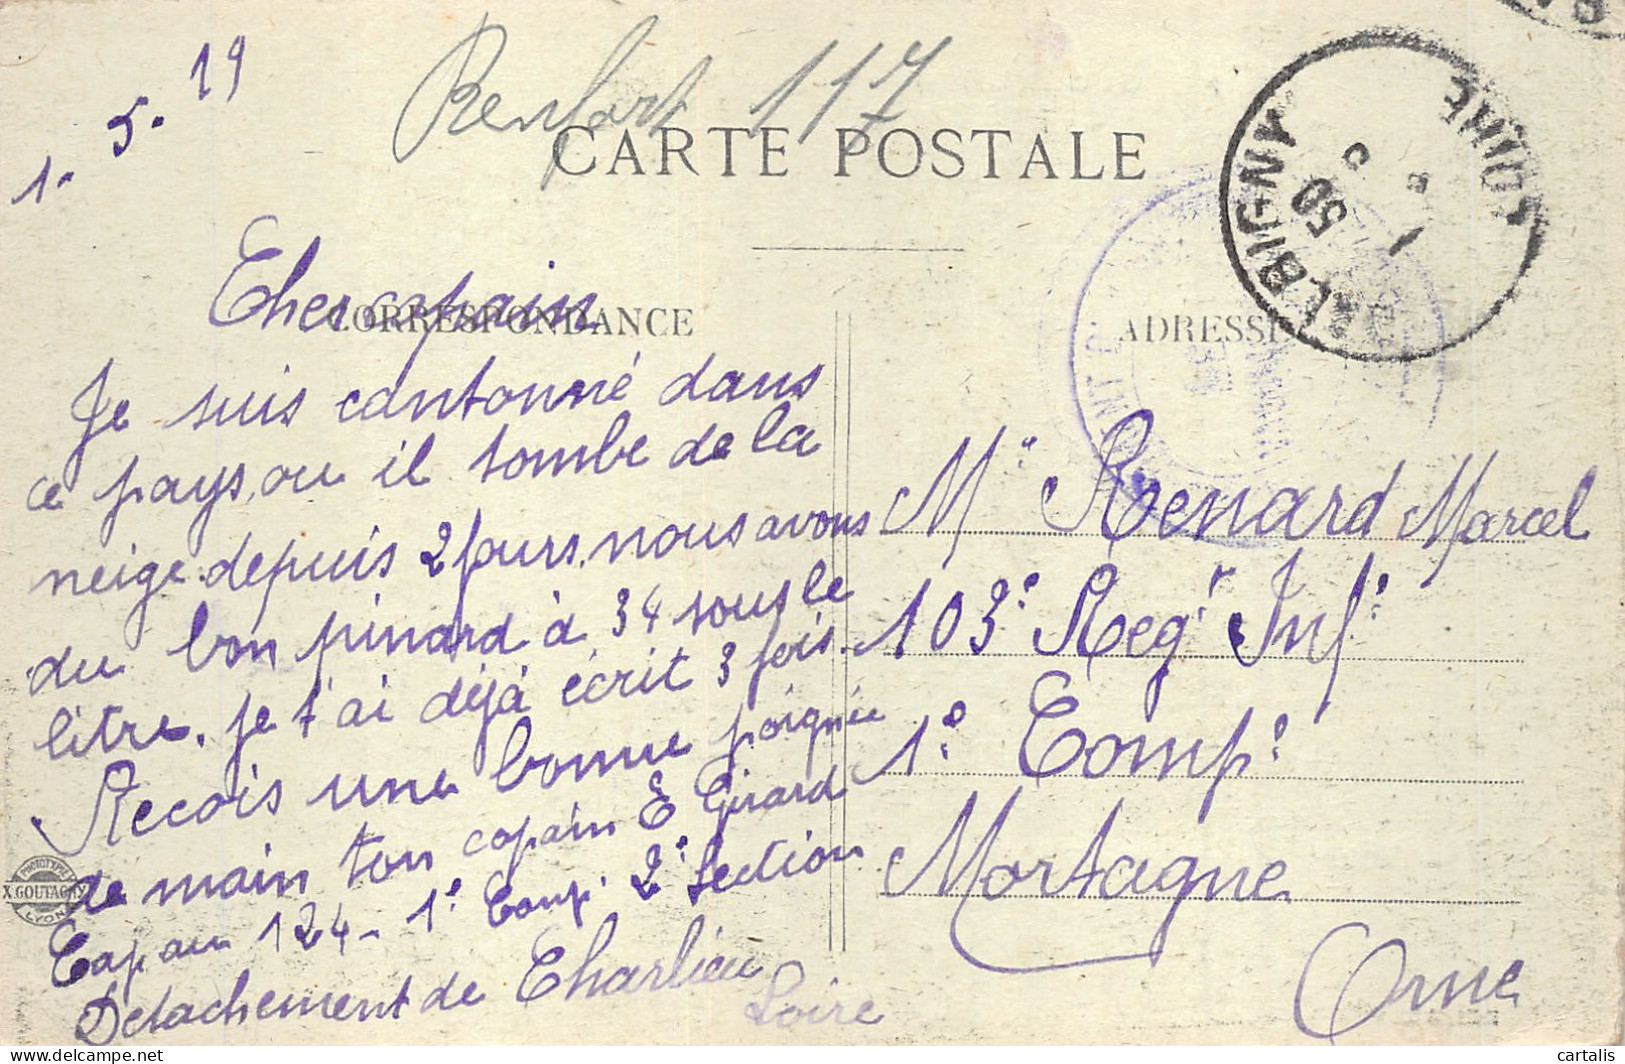 1- 5- 19
Renfort 117
CARTE POSTALE
BALBIGNY
LOIRE
CORRESPONDANCE
ADRESSE
Cher copain
Je suis cantonné dans
ce pays, ou il tombe de la
neige depuis 2 jours, nous avons
du bon pinard à 34 sous le
litre. je t'ai déjà écrit 3 fois.
Recois une bonne poignée
de main ton copain E Girard
au 124- 1e Comp. 2e Section
Detachement de Charlieu
Loire
Mr Renard Marcel
103e Regt Infie
1e Compe
Mortagne
Orne
PHOTOTYPIE
X.GOUTAGNY
LYON
cartalis